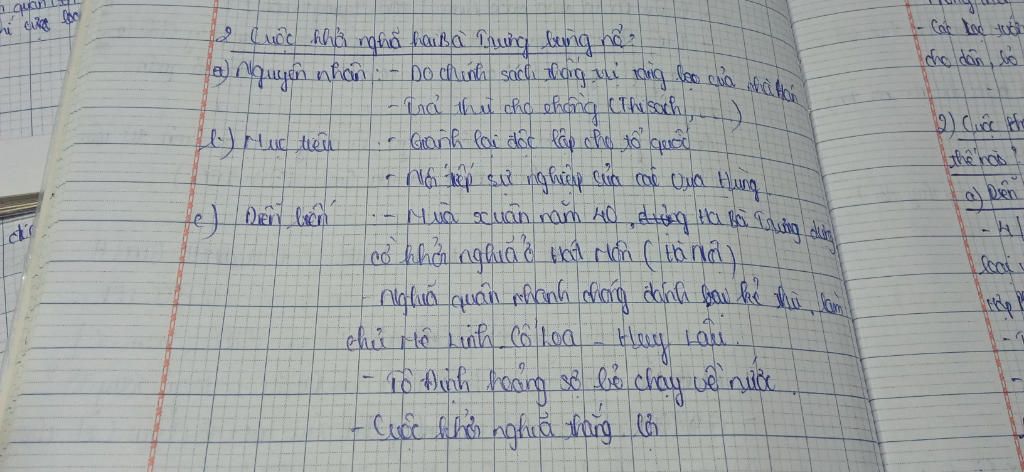 2 Cuộc khởi nghĩa hai Bà Trưng bùng nổ?
a) Nguyên nhân : - Do chính sách thống trị tàng bạo của nhà Hán
- Trả thù cho chồng (Thi sách, ...)
b.) Mục tiêu : - Giành lại độc lập cho tổ quốc
- Nối tiếp sự nghiệp của các vua Hùng
c) Diễn biến : - Mùa xuân năm 40, Hai Bà Trưng dựng
cờ khởi nghĩa ở Hát Môn (Hà Nội)
- Nghĩa quân nhanh chóng đánh bại kẻ thù, làm
chủ Mê Linh - Cổ Loa - Huy Lâu.
- Tô Định hoảng sợ bỏ chạy về nước
- Cuộc khởi nghĩa thắng lợi
- Các
cho dân, bỏ
2) Cuộc
thế nào?
a) Diễn